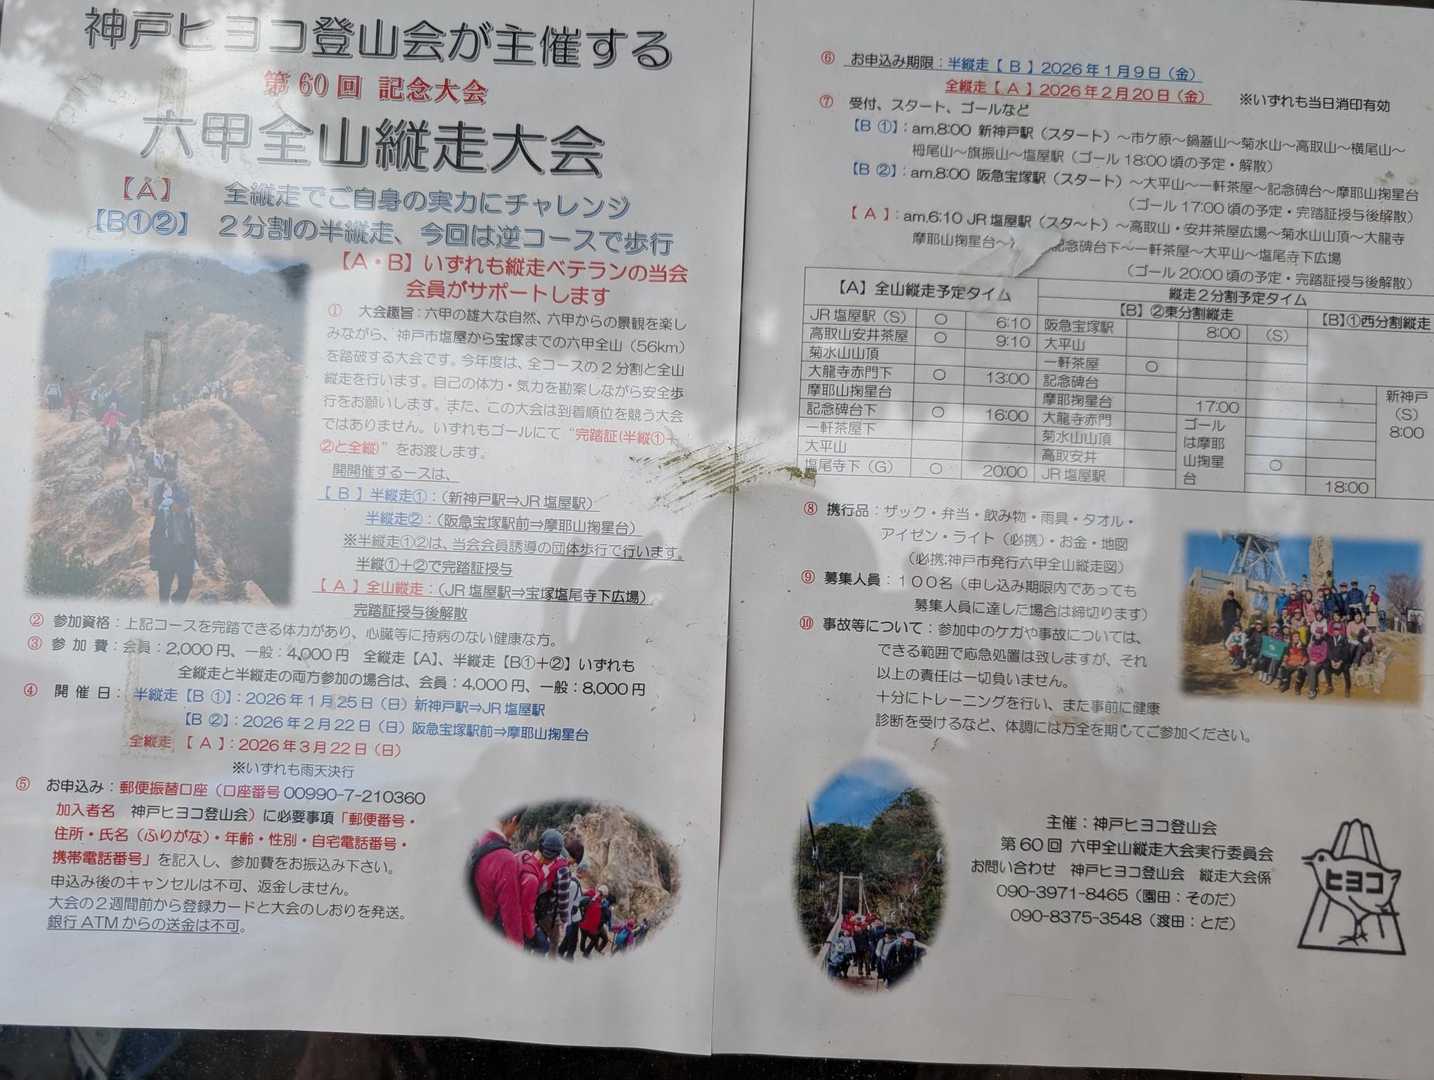 神戸ヒヨコ登山会が主催する
第60回 記念大会
六甲全山縦走大会
【A】 全縦走でご自身の実力にチャレンジ
【B①②】 2分割の半縦走、今回は逆コースで歩行
【A・B】いずれも縦走ベテランの当会
会員がサポートします
① 大会趣旨：六甲の雄大な自然、六甲からの景観を楽し
みながら、神戸市塩屋から宝塚までの六甲全山（56km）
を踏破する大会です。今年度は、全コースの2分割と全山
縦走を行います。自己の体力・気力を勘案しながら安全歩
行をお願いします。また、この大会は到着順位を競う大会
ではありません。いずれもゴールにて“完踏証(半縦①＋
②と全縦)”をお渡します。
開開催するコースは、
【B】半縦走①：（新神戸駅⇒JR塩屋駅）
半縦走②：（阪急宝塚駅前⇒摩耶山掬星台）
※半縦走①②は、当会会員誘導の団体歩行で行います。
半縦①＋②で完踏証授与
【A】全山縦走：（JR塩屋駅⇒宝塚塩尾寺下広場）
完踏証授与後解散
② 参加資格：上記コースを完踏できる体力があり、心臓等に持病のない健康な方。
③ 参加費：会員：2,000円、一般：4,000円 全縦走【A】、半縦走【B①＋②】いずれも
全縦走と半縦走の両方参加の場合は、会員：4,000円、一般：8,000円
④ 開催日：半縦走【B ①】：2026年1月25日（日）新神戸駅⇒JR塩屋駅
【B ②】：2026年2月22日（日）阪急宝塚駅前⇒摩耶山掬星台
全縦走 【A】：2026年3月22日（日）
※いずれも雨天決行
⑤ お申込み：郵便振替口座（口座番号00990-7-210360
加入者名 神戸ヒヨコ登山会）に必要事項「郵便番号・
住所・氏名（ふりがな）・年齢・性別・自宅電話番号・
携帯電話番号」を記入し、参加費をお振込み下さい。
申込み後のキャンセルは不可、返金しません。
大会の2週間前から登録カードと大会のしおりを発送。
銀行ATMからの送金は不可。
⑥ お申込み期限：半縦走【B】2026年1月9日（金）
全縦走【A】2026年2月20日（金） ※いずれも当日消印有効
⑦ 受付、スタート、ゴールなど
【B ①】：am.8:00 新神戸駅（スタート）～市ケ原～鍋蓋山～菊水山～高取山～横尾山～
栂尾山～旗振山～塩屋駅（ゴール18:00頃の予定・解散）
【B ②】：am.8:00 阪急宝塚駅（スタート）～大平山～一軒茶屋～記念碑台～摩耶山掬星台
（ゴール17:00頃の予定・完踏証授与後解散）
【A】：am.6:10 JR塩屋駅（スタート）～高取山・安井茶屋広場～菊水山山頂～大龍寺
摩耶山掬星台～ 記念碑台下～一軒茶屋～大平山～塩尾寺下広場
（ゴール20:00頃の予定・完踏証授与後解散）
【A】全山縦走予定タイム 縦走2分割予定タイム
【B】②東分割縦走 【B】①西分割縦走
JR塩屋駅（S） ○ 6:10 阪急宝塚駅 8:00 （S）
高取山安井茶屋 ○ 9:10 大平山
菊水山山頂 一軒茶屋 ○
大龍寺赤門下 ○ 13:00 記念碑台
摩耶山掬星台 摩耶掬星台 17:00 新神戸（S）8:00
記念碑台下 ○ 16:00 大龍寺赤門 ゴールは摩耶山掬星台
一軒茶屋下 菊水山山頂
大平山 高取安井 ○
塩尾寺下（G） ○ 20:00 JR塩屋駅 18:00
⑧ 携行品：ザック・弁当・飲み物・雨具・タオル・
アイゼン・ライト（必携）・お金・地図
（必携:神戸市発行六甲全山縦走図）
⑨ 募集人員：100名（申し込み期限内であっても
募集人員に達した場合は締切ります）
⑩ 事故等について：参加中のケガや事故については、
できる範囲で応急処置は致しますが、それ
以上の責任は一切負いません。
十分にトレーニングを行い、また事前に健康
診断を受けるなど、体調には万全を期してご参加ください。
主催：神戸ヒヨコ登山会
第60回 六甲全山縦走大会実行委員会
お問い合わせ 神戸ヒヨコ登山会 縦走大会係
090-3971-8465（園田：そのだ）
090-8375-3548（渡田：とだ）
ヒヨコ